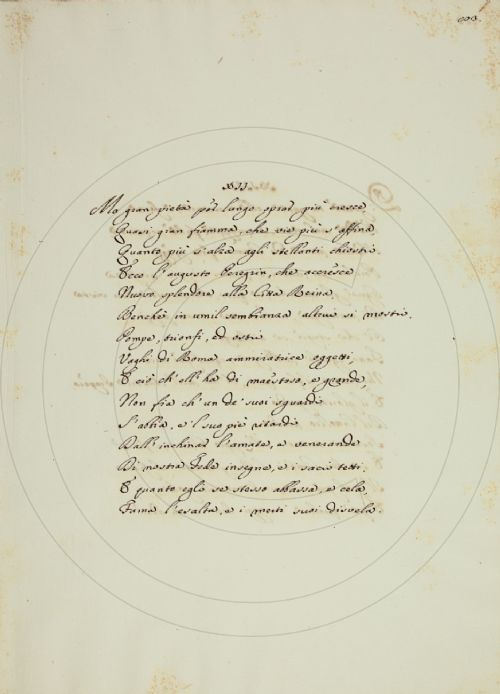 XII
Ma gran pietà per lungo oprar più cresce,
Quasi gran fiamma, che vie più s'affina
Quanto più s'alza agli stellanti chiostri.
Ecco l'augusto Peregrin, che accresce
Nuovo splendore alla Città Reina
Benchè in umil sembianza altrui si mostri.
Pompe, trionfi, ed ostri
Vaghi di Roma ammiratrice oggetti,
E ciò ch'ell'ha di maestoso, e grande,
Non fia ch'un de' suoi sguardi
S'abbia, e 'l suo piè ritardi
Dall'inchinar l'amate, e venerande
Di nostra Fede insegne, e i sacri tetti.
E quanto egli se stesso abbassa, e cela,
Fama l'esalta, e i merti suoi disvela.